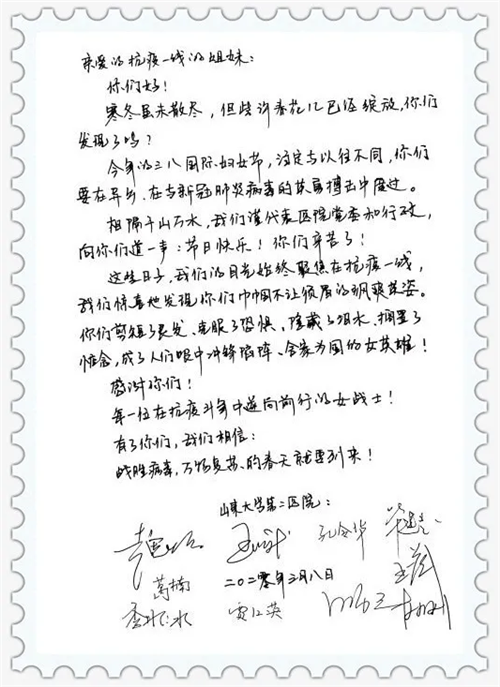 亲爱的抗疫一线的姐妹：
你们好！
寒冬虽未散尽，但些许春花儿已经绽放，你们
发现了吗？
今年的三八国际妇女节，注定与以往不同，你们
要在异乡、在与新冠肺炎病毒的英勇搏击中度过。
相隔千山万水，我们谨代表医院党委和行政，
向你们道一声：节日快乐！你们辛苦了！
这些日子，我们的目光始终聚焦在抗疫一线，
我们惊喜地发现你们巾帼不让须眉的飒爽英姿。
你们剪短了长发、克服了恐惧、隐藏了泪水、搁置了
惦念，成了人们眼中冲锋陷阵、舍家为国的女英雄！
感谢你们！
每一位在抗疫斗争中逆向前行的女战士！
有了你们，我们相信：
战胜病毒，万物复苏、的春天就要到来！
山东大学第二医院：
孔令华
葛楠 二〇二〇年三月八日
贾红英